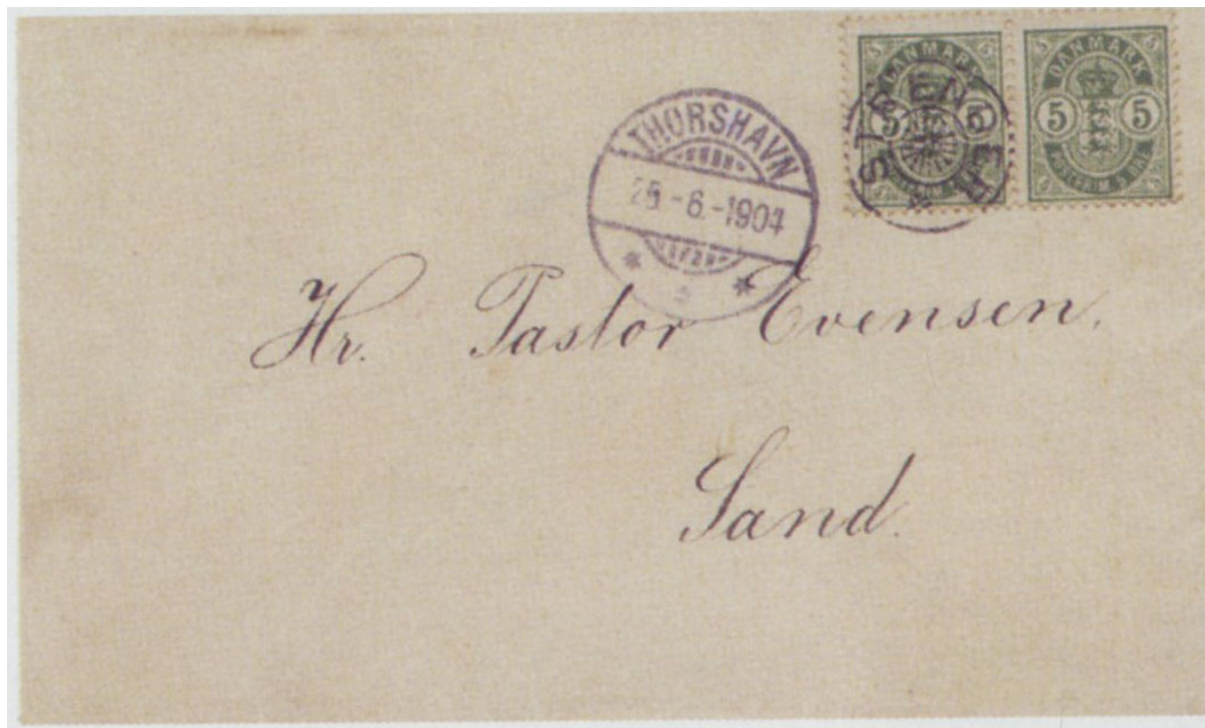 DANMARK
5 5
DANMARK
5 5
STRENDER
THORSHAVN
25.-6.-1904
Hr. Pastor Evensen,
Sand.